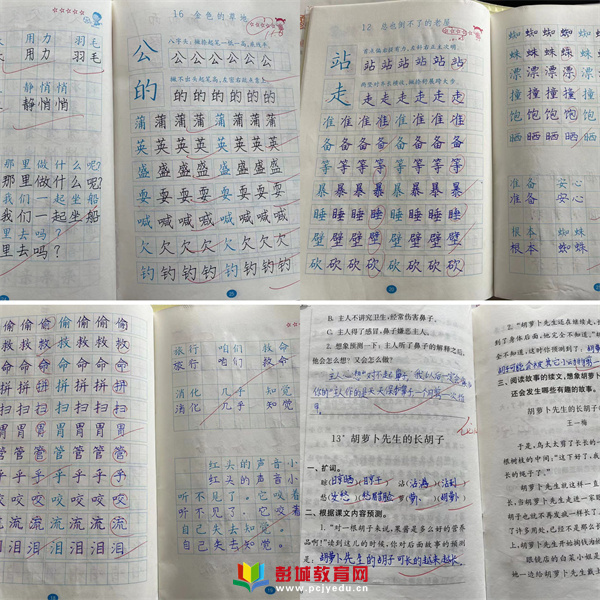 用力 羽毛
用力 羽毛
静悄悄
静悄悄
那里做什么呢?
那里做什么呢?
我们一起坐船
我们一起坐船
里去吗?
里去吗?
16 金色的草地
公 公公公公公公
的 的的的的的的
蒲 蒲 蒲 蒲
英 英 英 英 英 英 英
盛 盛 盛 盛
耍 耍 耍 耍 耍 耍 耍
喊 喊 喊 喊 喊 喊 喊
欠 欠 欠 欠 欠 欠 欠
钓 钓 钓 钓 钓 钓 钓
12 总也倒不了的老屋
站 站站站站站站
走 走走走走走走
准 准 准 准 准 准 准
备 备 备 备 备 备 备
等 等 等 等 等 等 等
暴 暴 暴 暴 暴 暴 暴
睡 睡 睡 睡 睡 睡 睡
壁 壁 壁 壁 壁 壁 壁
砍 砍 砍 砍 砍 砍 砍
蜘 蜘 蜘 蜘
蛛 蛛 蛛 蛛
漂 漂 漂 漂
撞 撞 撞 撞
饱 饱 饱 饱
晒 晒 晒 晒
准备 安心
准备 安心
根本 蜘蛛
根本 蜘蛛
偷 偷 偷 偷 偷 偷 偷
救 救 救 救 救 救 救
命 命 命 命 命 命 命
拼 拼 拼 拼 拼 拼 拼
扫 扫 扫 扫 扫 扫 扫
胃 胃 胃 胃 胃 胃 胃
管 管 管 管 管 管 管
乎 乎 乎 乎 乎 乎 乎
咬 咬 咬 咬 咬 咬 咬
流 流 流 流 流 流 流
泪 泪 泪 泪 泪 泪 泪
旅行 咱们 救命
旅行 咱们 救命
消化 几乎 知觉
消化 几乎 知觉
红头的声音小
红头的声音小
听不见了。它咬着
听不见了。它咬着
自己失去知觉。
自己失去知觉。
B. 主人不讲究卫生,经常伤害鼻子。
C. 主人得了感冒,鼻子嫌恶主人。
2. 想象预测一下,主人听了鼻子的解释之后,
他会怎么想?又会怎么做?
13* 胡萝卜先生的长胡子
一、扩词。
二、根据课文内容预测。
1. “对一根胡子来说,果酱是多么好的营养
品啊!”读到这儿的时候,你对后面故事的预测
是:胡萝卜先生的胡子可长的越来越长。
2. “胡萝卜先生还在继续走,
到了身体后面,他完全不知道。”
三、阅读故事的续文,想象胡萝卜
还会发生哪些有趣的故事。
胡萝卜先生的长胡子
王一梅
于是,鸟太太剪了长长的一
根树枝的中间:“这下好了,我
长的绳子了。”
胡萝卜先生就这样一直
长,当胡萝卜先生走进一家眼
了许多周折,已经不是那么长
眼镜店的白菜小姐是
她一边给胡萝卜先生戴上
彭城教育网
www.pcjyedu.cn